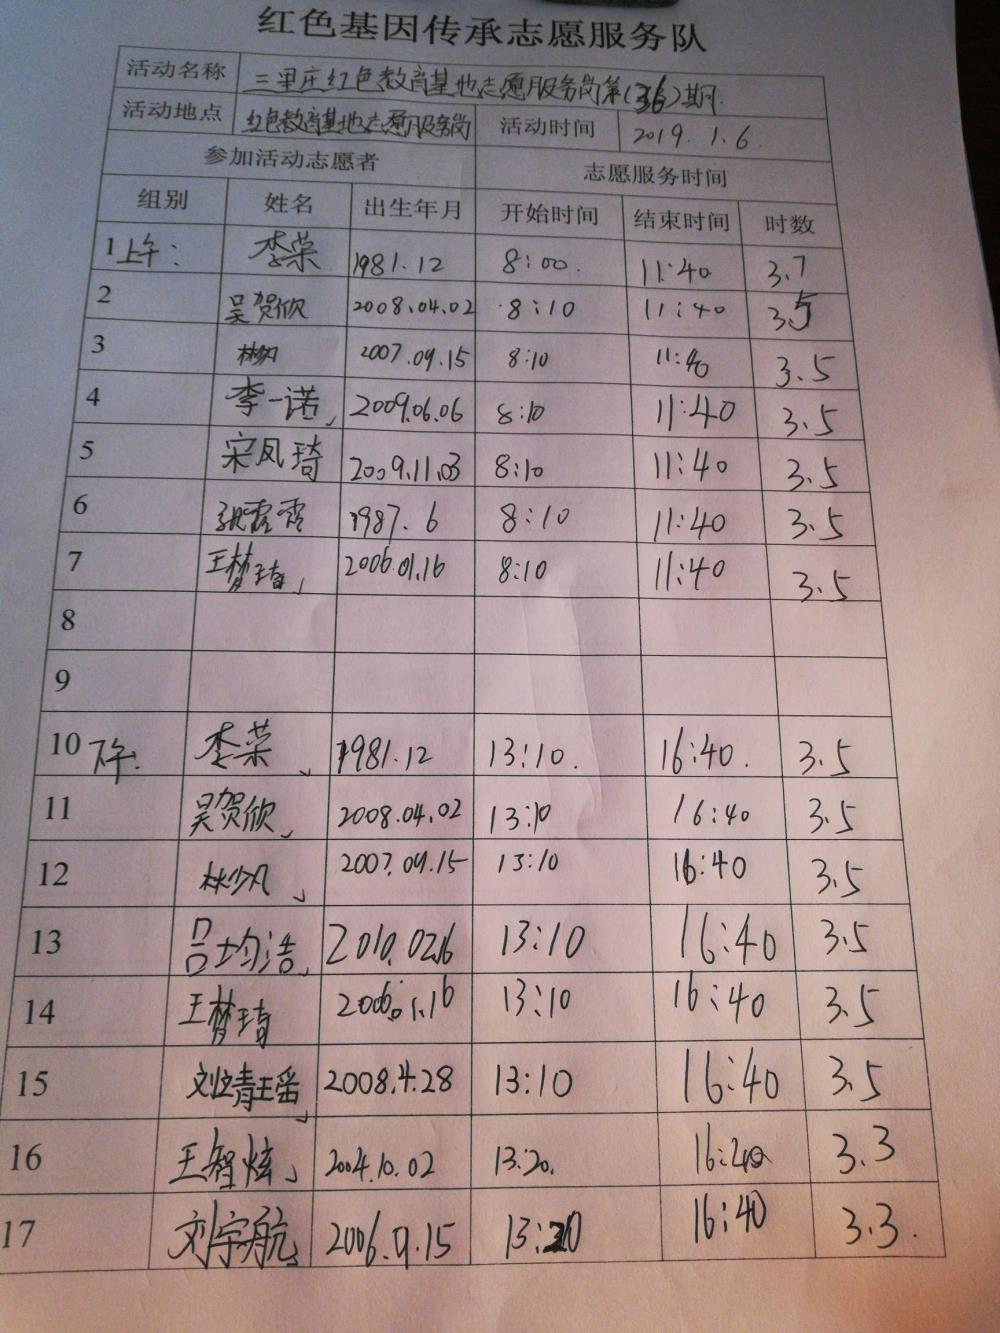 红色基因传承志愿服务队
活动名称 三里庄红色教育基地志愿服务岗第(36)期
活动地点 红色教育基地志愿服务岗 活动时间 2019.1.6.
参加活动志愿者 志愿服务时间
组别 姓名 出生年月 开始时间 结束时间 时数
1上午: 李荣 1981.12 8:00. 11:40 3.7
2 吴贺欣 2008.04.02 8:10 11:40 3.5
3 2007.09.15 8:10 11:40 3.5
4 李一诺 2009.06.06 8:10 11:40 3.5
5 宋凤琦 2009.11.03 8:10 11:40 3.5
6 张露露 1987.6 8:10 11:40 3.5
7 王梦琦 2006.01.16 8:10 11:40 3.5
8
9
10下午: 李荣 1981.12 13:10. 16:40. 3.5
11 吴贺欣 2008.04.02 13:10 16:40 3.5
12 林少凡 2007.09.15 13:10 16:40 3.5
13 吕均浩 2010.02.16 13:10 16:40 3.5
14 王梦琦 2006.01.16 13:10 16:40 3.5
15 2008.4.28 13:10 16:40 3.5
16 王智炫 2004.10.02 13:20. 16:40 3.3
17 刘宇航 2006.9.15 13:20 16:40 3.3.